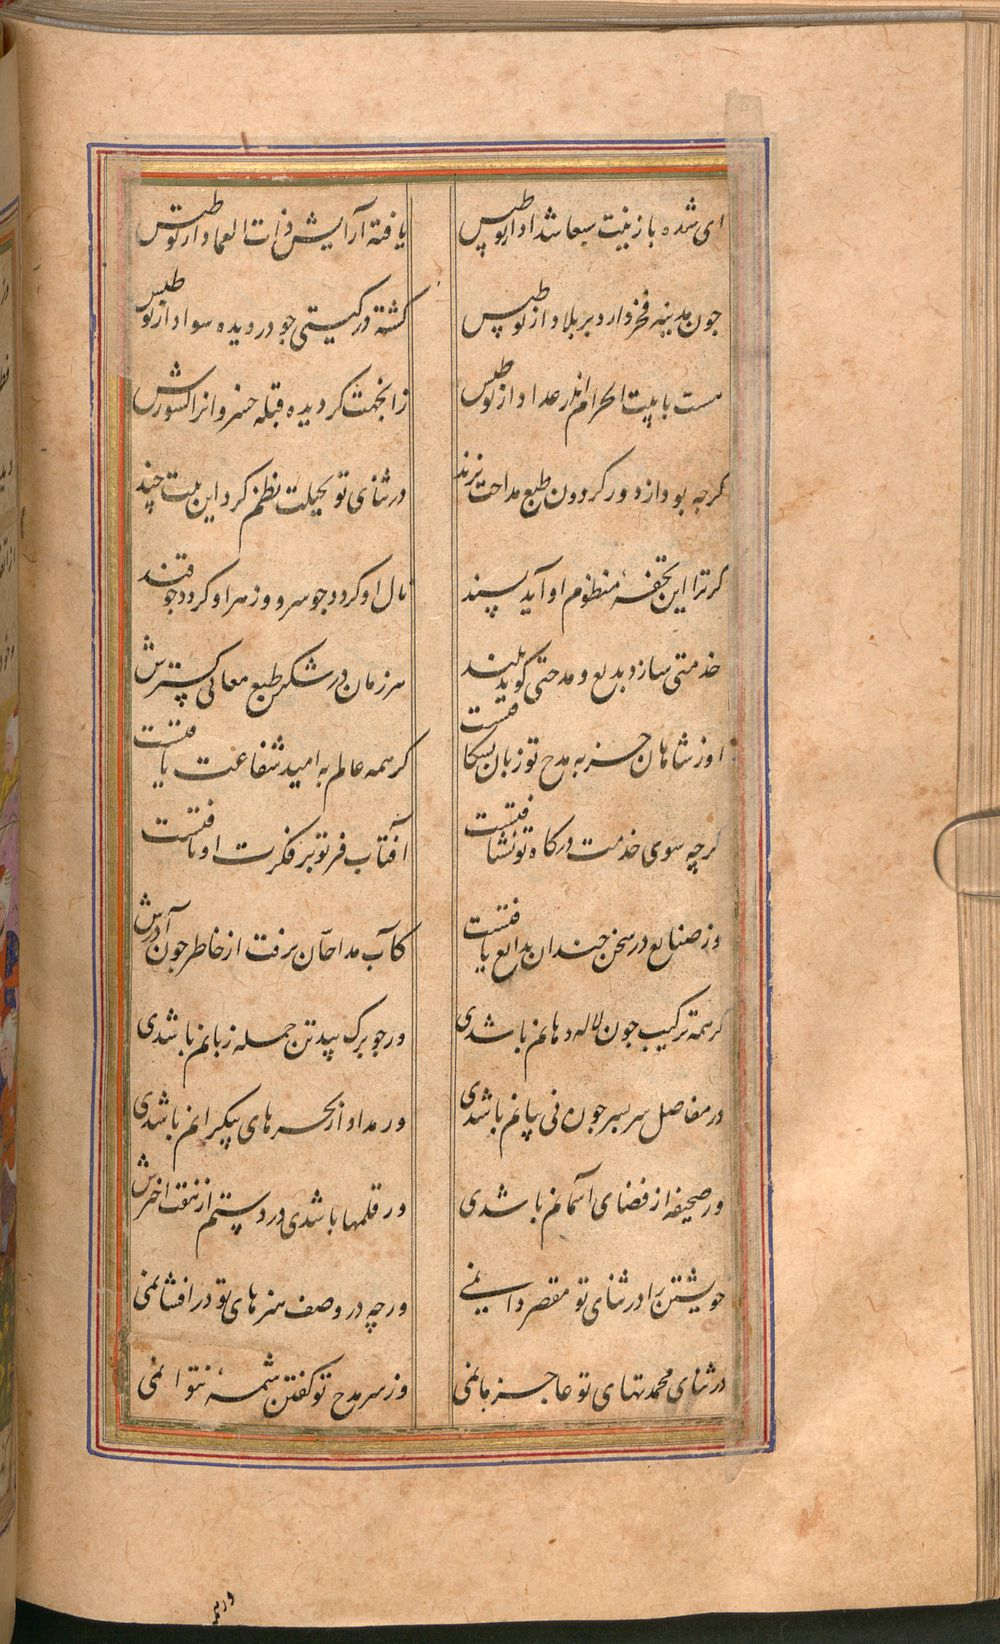 ای شده با زینت سبعا شداد از بو طیس
یافته آرایش ذات العماد از تو طیس
جون مدینه فخر دارد بر بلاد از تو طیس
کشته در کیتی جو در دیده سواد از تو طیس
هست با بیت الحرام اندر عداد از تو طیس
زانجهت کردیده قبله خسروانرا کشورش
کرجه بود از دور کردون طبع مداحت نژند
در ثنای تو بحیلت نظم کرد این بیت چند
کر ترا این تحفهٔ منظوم او آید پسند
نال او کردد جو سرو و زهر او کردد جو قند
خدمتی سازد بدیع و مدحتی کوید بلند
هر زمان در شکر طبع معانی کسترش
او ز شاهان جز به مدح تو زبان نشکافتست
کر همه عالم به امید شفاعت یافتست
کرچه سوی خدمت درکاه تو نشتافتست
آفتاب فر تو بر فکرت او تافتست
وز صنایع در سخن جندان بدایع یافتست
کآب مداحان برفت از خاطر جون آذرش
کر همه ترکیب جون لاله دهانم باشدی
ور جو برک بید تن جمله زبانم باشدی
در مفاصل سر بسر جون نی بیانم باشدی
ور مداد از بحرهای بیکرانم باشدی
ور صحیفه از فضای آسمانم باشدی
ور قلمها باشدی در دستم از نفت اخترش
خویشتن را در ثنای تو مقصر دانمی
ورچه در وصف هنرهای تو در افشانمی
در ثنای محمدتهای تو عاجز مانمی
وز سر مدح تو کفتن شمهٔ نتوانمی